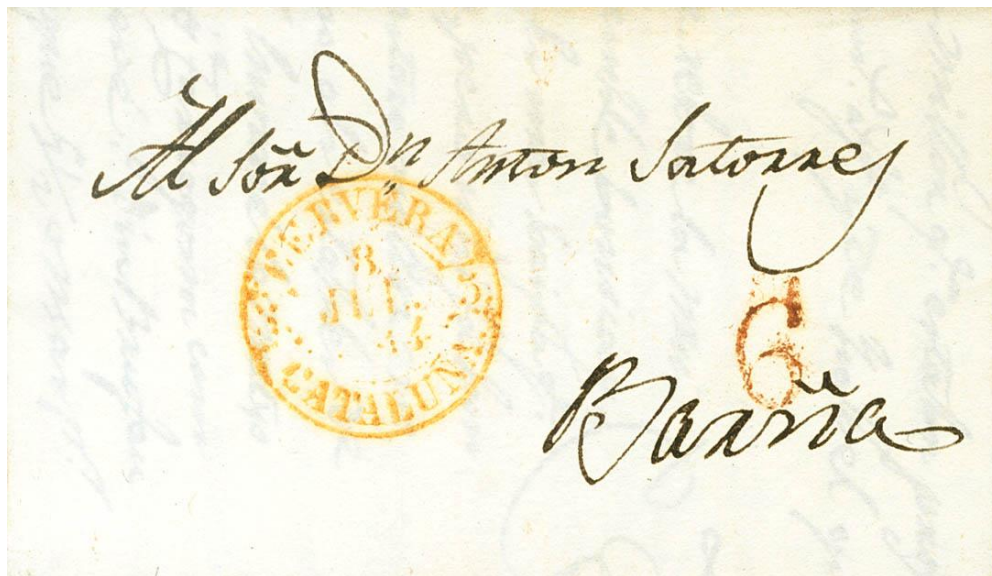 Al Sõr Dn Anton Satorres
CERVERA 5
8
JUL.
44
CATALUÑA
6
Barña